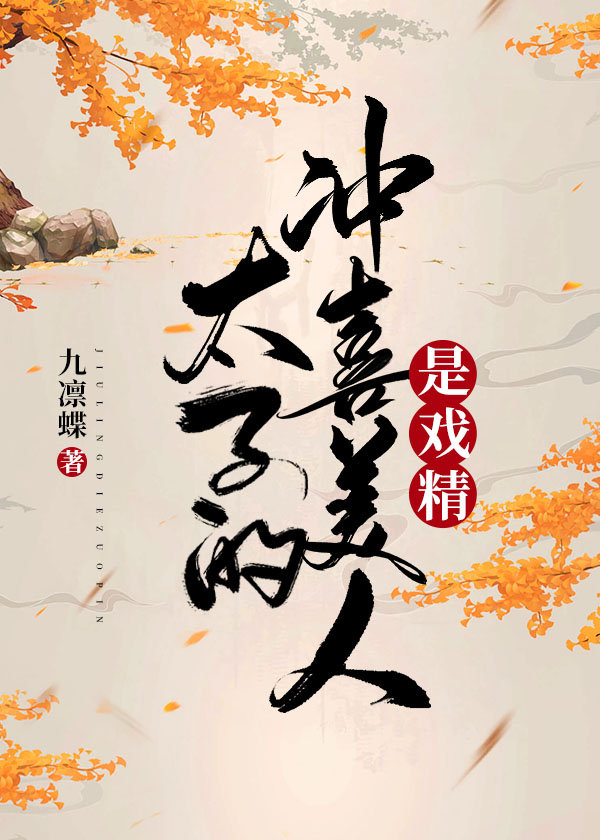 太子的
冲喜美人
是戏精
九凛蝶 著
JIULINGDIEZUOPIN